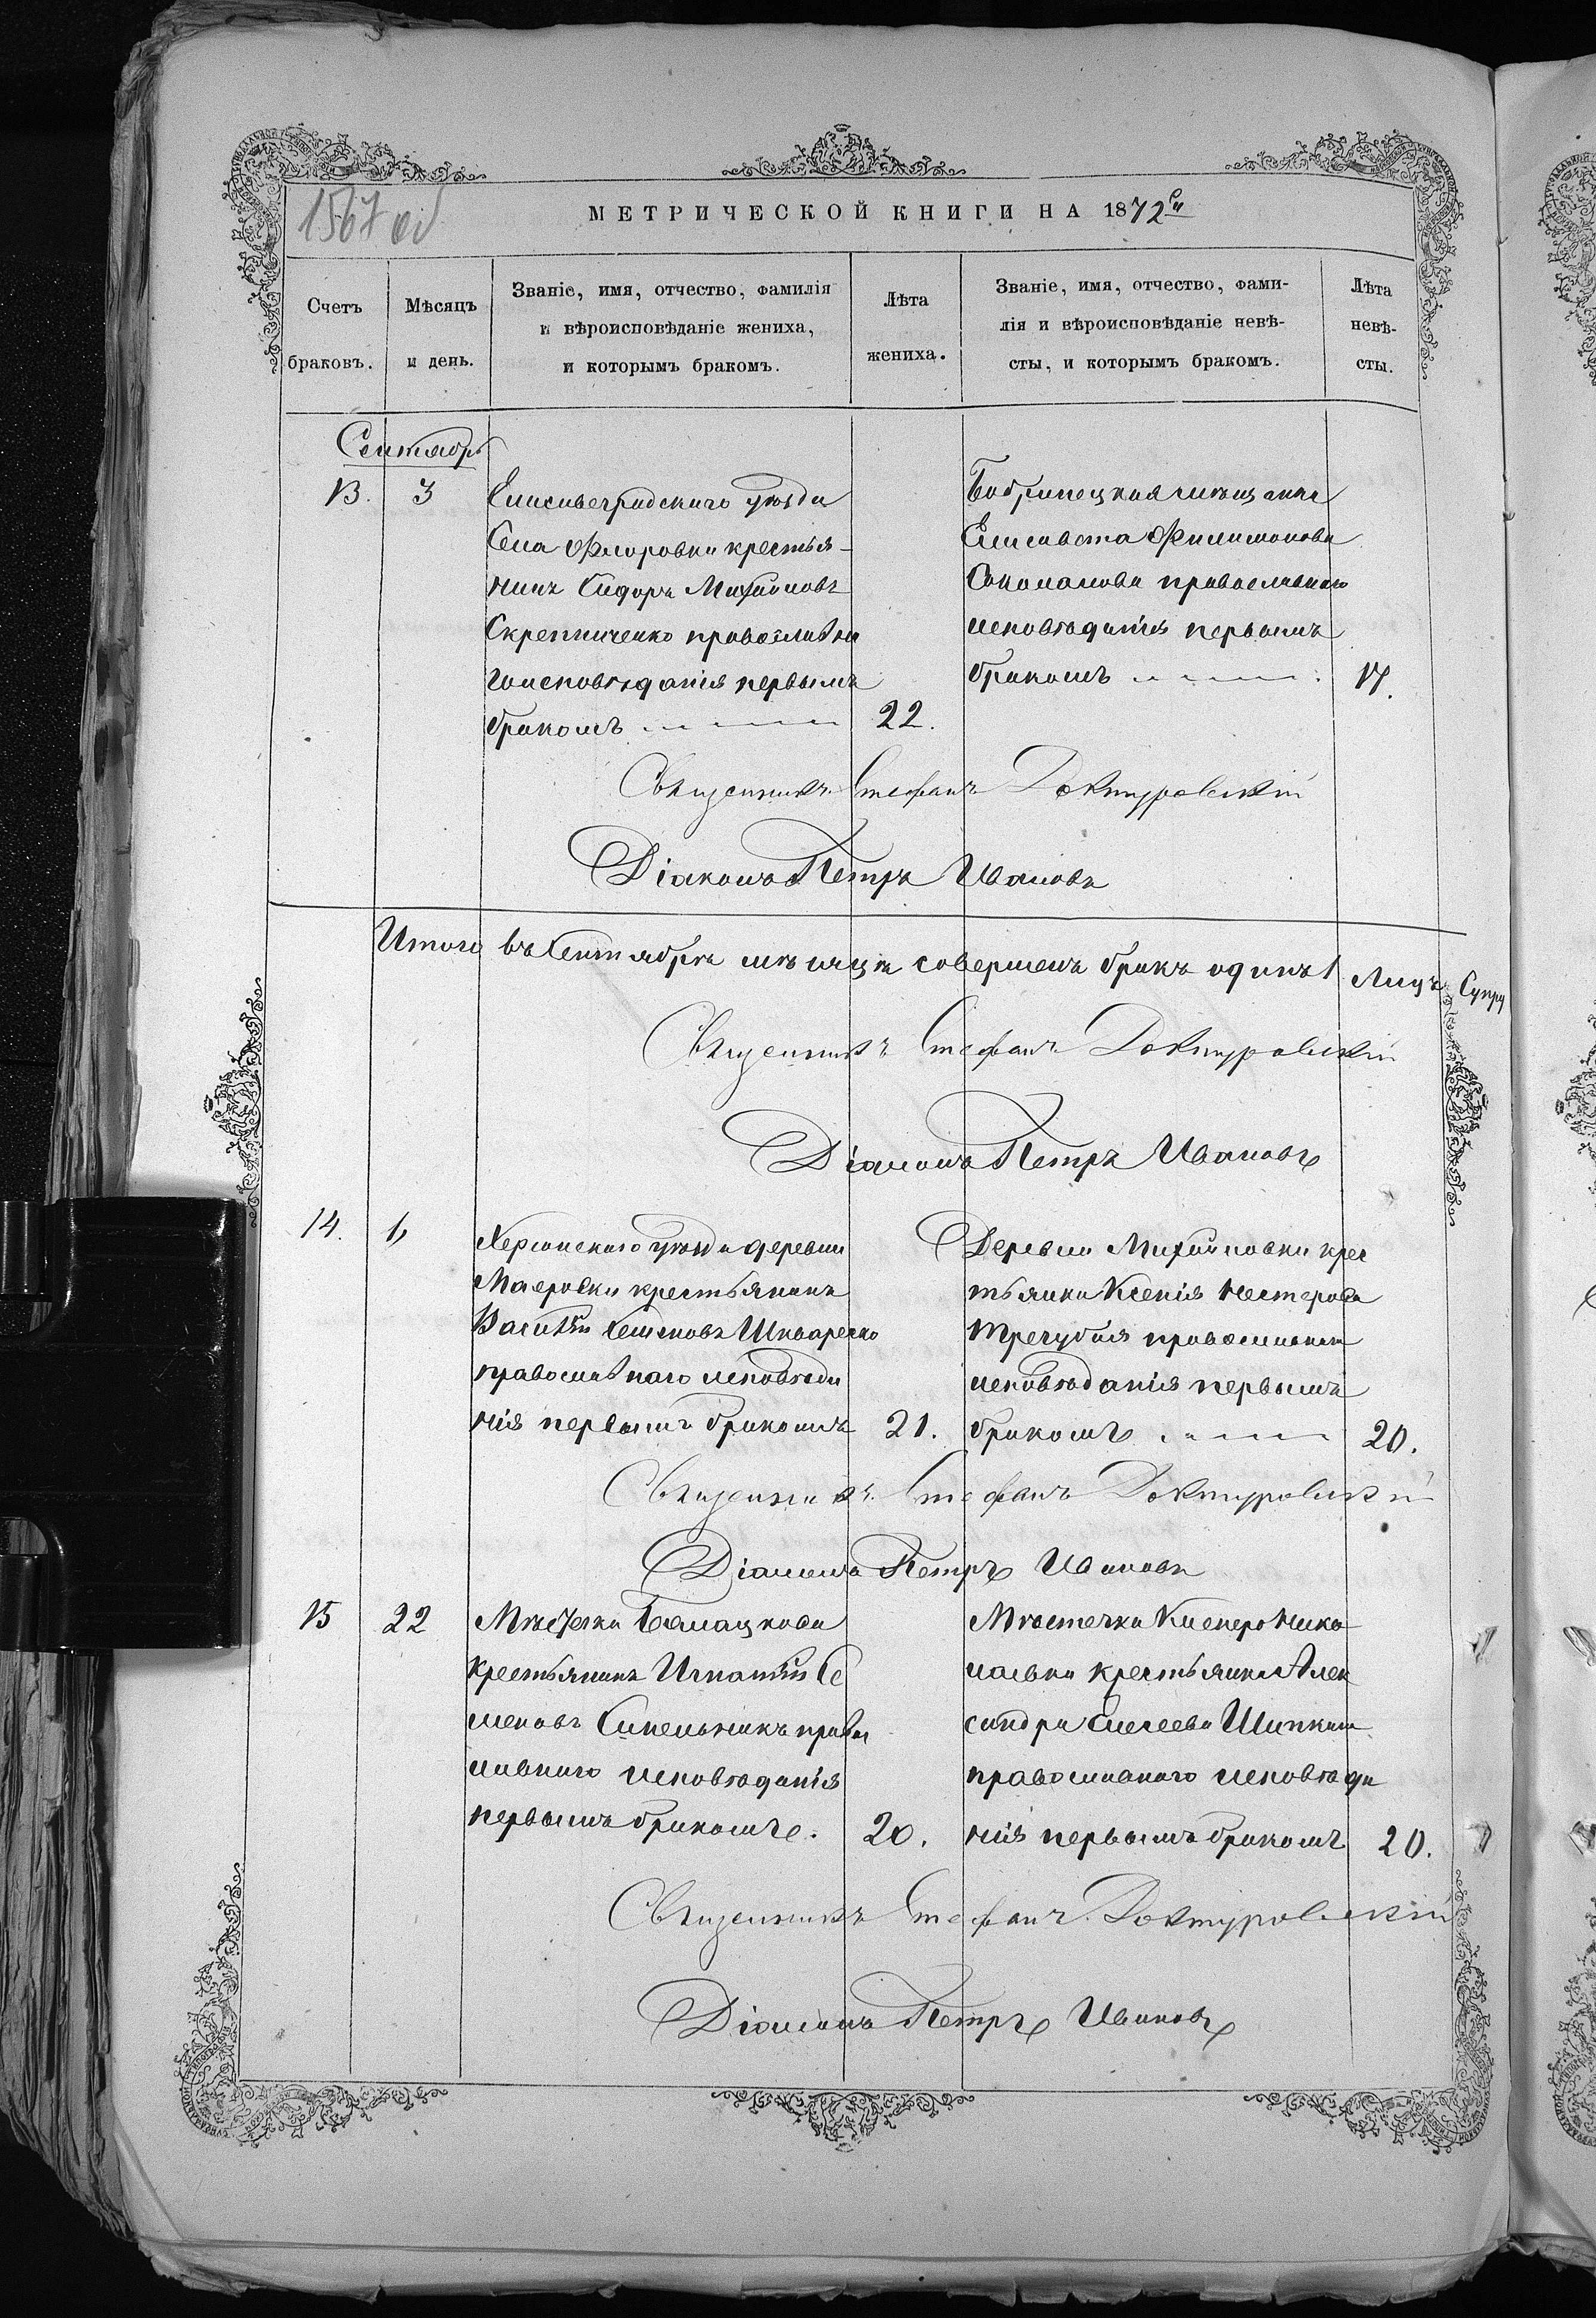 1567 об
МЕТРИЧЕСКОЙ КНИГИ НА 1872й
Счетъ браковъ.
Мѣсяцъ и день.
Званіе, имя, отчество, фамилія
и вѣроисповѣданіе жениха,
и которымъ бракомъ.
Лѣта
жениха.
Званіе, имя, отчество, фами-
лія и вѣроисповѣданіе невѣ-
сты, и которымъ бракомъ.
Лѣта
невѣ-
сты.
Сентябрь
13. 3
Елисаветградскаго уѣзда
Села Флоровки крестья-
нинъ Сидоръ Михайловъ
Скрепниченко православна
го исповѣданія первымъ
бракомъ 22.
Бобринецкая мѣщанка
Елисавета Филимонова
православнаго
исповѣданія первымъ
бракомъ 17.
Священникъ Стефанъ Доктуровскій
Діаконъ Петръ Ивановъ
Итого въ Сентябрѣ мѣсяцѣ совершенъ бракъ одинъ 1 Лицъ Супру
Священникъ Стефанъ Доктуровскій
Діаконъ Петръ Ивановъ
14. 1
Херсонскаго уѣзда деревни
Маеровки крестьянинъ
Василій Семеновъ
православнаго исповѣда
нія первымъ бракомъ 21.
Деревни Михайловки крес
тьянка Ксенія Нестерова
Трегубая
исповѣданія первымъ
бракомъ 20.
Священникъ Стефанъ Доктуровскій
Діаконъ Петръ Ивановъ
15 22
Мѣстечка Балацкова
крестьянинъ Игнатій Се
меновъ Синельникъ право
славнаго исповѣданія
первымъ бракомъ. 20.
Мѣстечка Кисперо Нико
лаевки крестьянка Алек
сандра Елесеева
православнаго исповѣда
нія первымъ бракомъ 20.
Священникъ Стефанъ Доктуровскій
Діаконъ Петръ Ивановъ